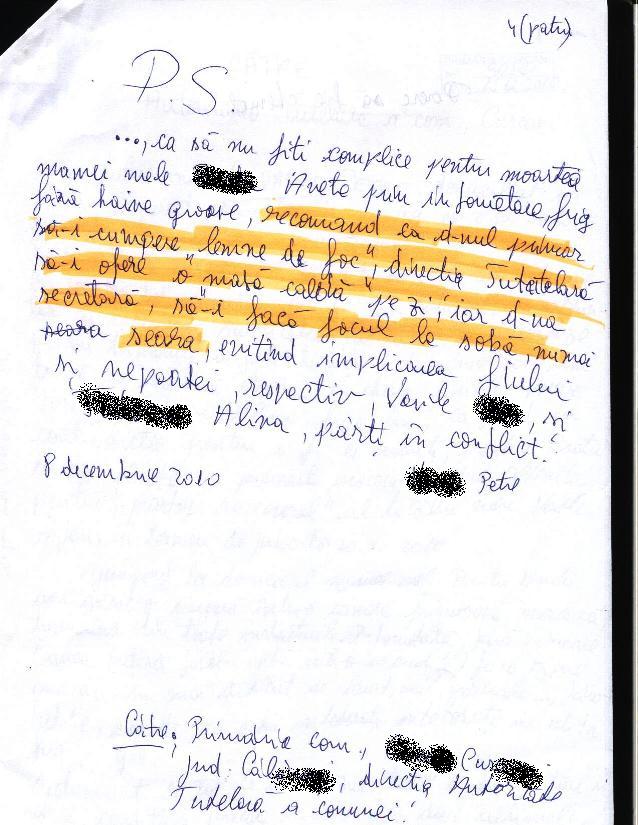 4 (patru)
P.S.
..., ca să nu fiți complice pentru moartea
mamei mele Aneta prin înfometare, frig
fără haine groase, recomand ca d-nul primar
să-i cumpere "lemne de foc", direcția Tutelară
să-i ofere "o masă caldă" pe zi, iar d-na
secretară, să-i facă focul la sobă, numai
seara seara, evitînd implicarea fiului
și nepoatei, respectiv, Vasile, și
Alina, părți în conflict.
8 decembrie 2010 Petre
Către; Primăria com.,
jud. Căl, direcția Autoritate
Tutelară a comunei.